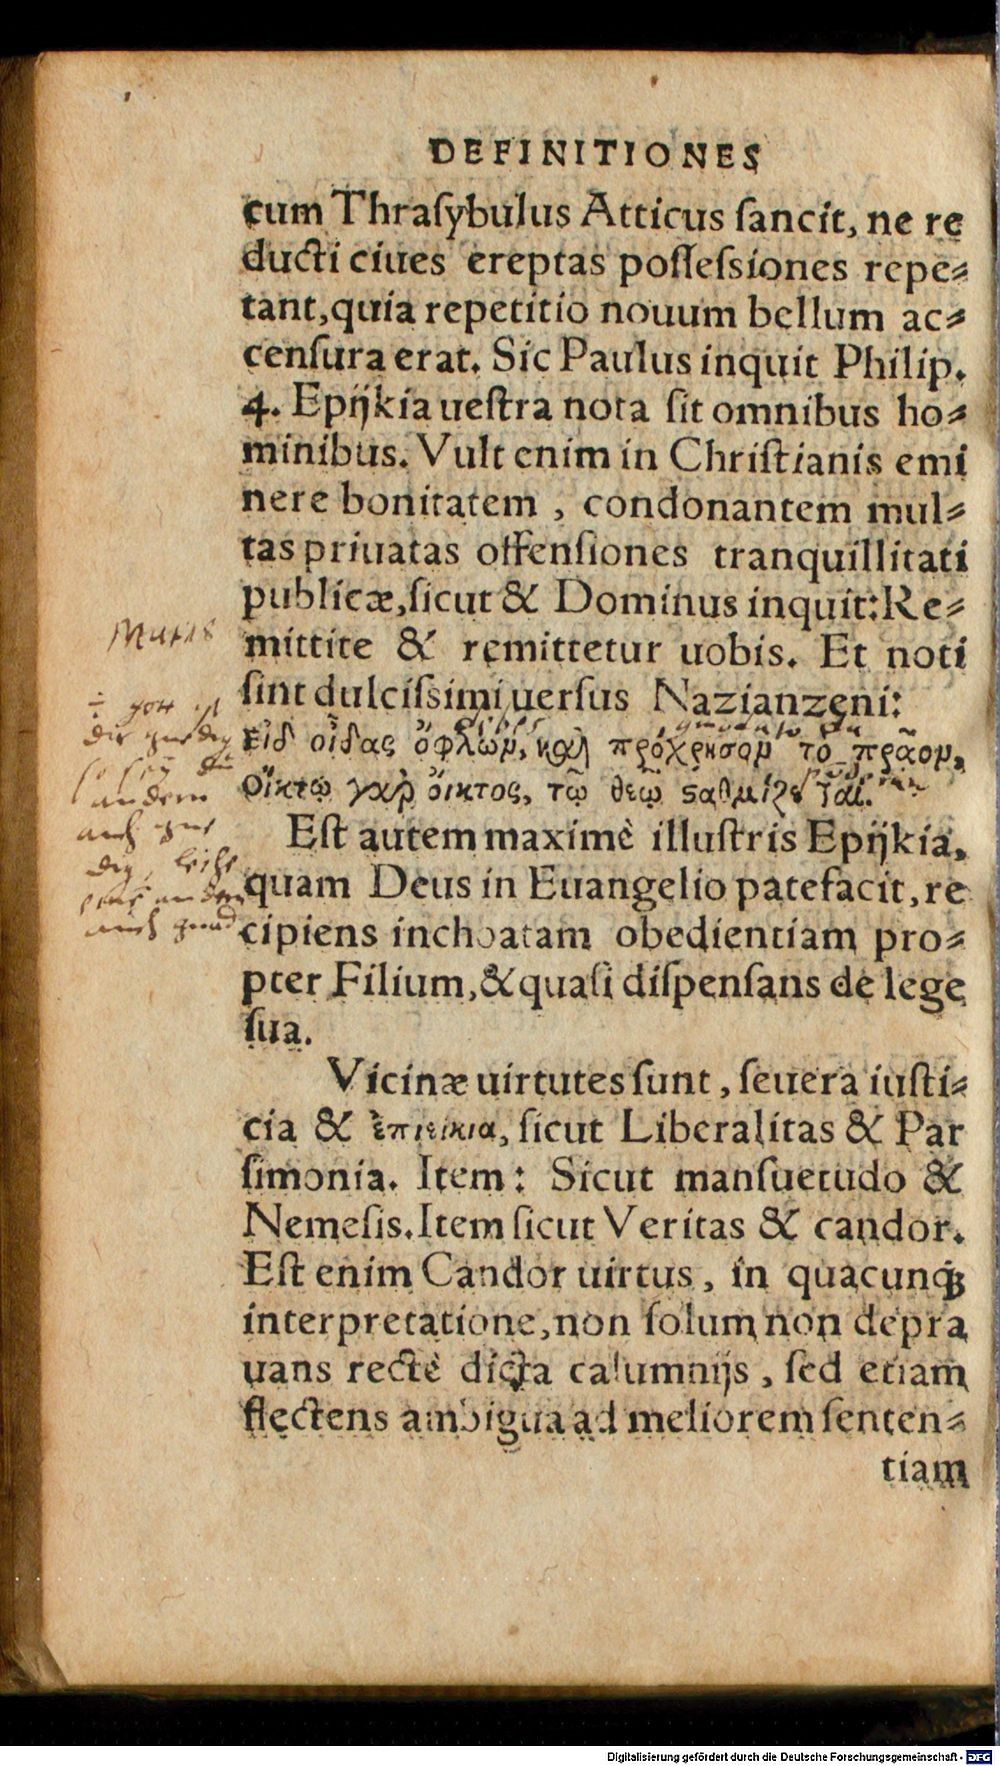 DEFINITIONES
cum Thraſybulus Atticus ſancit, ne re
ducti ciues ereptas poſſeſsiones repe-
tant, quia repetitio nouum bellum ac-
cenſura erat. Sic Paulus inquit Philip.
4. Epijkia ueſtra nota ſit omnibus ho-
minibus. Vult enim in Chriſtianis emi
nere bonitatem, condonantem mul-
tas priuatas offenſiones tranquillitati
publicæ, ſicut & Dominus inquit: Re-
mittite & remittetur uobis. Et noti
ſint dulciſsimi uerſus Nazianzeni:
οἶδας ὀφλὼν, καὶ πρόχρησον τὸ πρᾶον,
Οἴκτῳ γὰρ οἶκτος, τῷ θεῷ σαθμίζεται.
Eſt autem maximè illuſtris Epijkia,
quam Deus in Euangelio patefacit, re
cipiens inchoatam obedientiam pro-
pter Filium, & quaſi diſpenſans de lege
ſua.
Vicinæ uirtutes ſunt, ſeuera iuſti-
cia & ἐπιείκια, ſicut Liberalitas & Par
ſimonia. Item: Sicut manſuetudo &
Nemeſis. Item ſicut Veritas & candor.
Eſt enim Candor uirtus, in quacunq́;
interpretatione, non ſolum non depra
uans rectè dicta calumnijs, ſed etiam
flectens ambigua ad meliorem ſenten-
tiam
gott ist
dir gnedig
so sey du
andern
auch gne
dig, leihe
eins andern
auch gnad
Digitalisierung gefördert durch die Deutsche Forschungsgemeinschaft - DFG